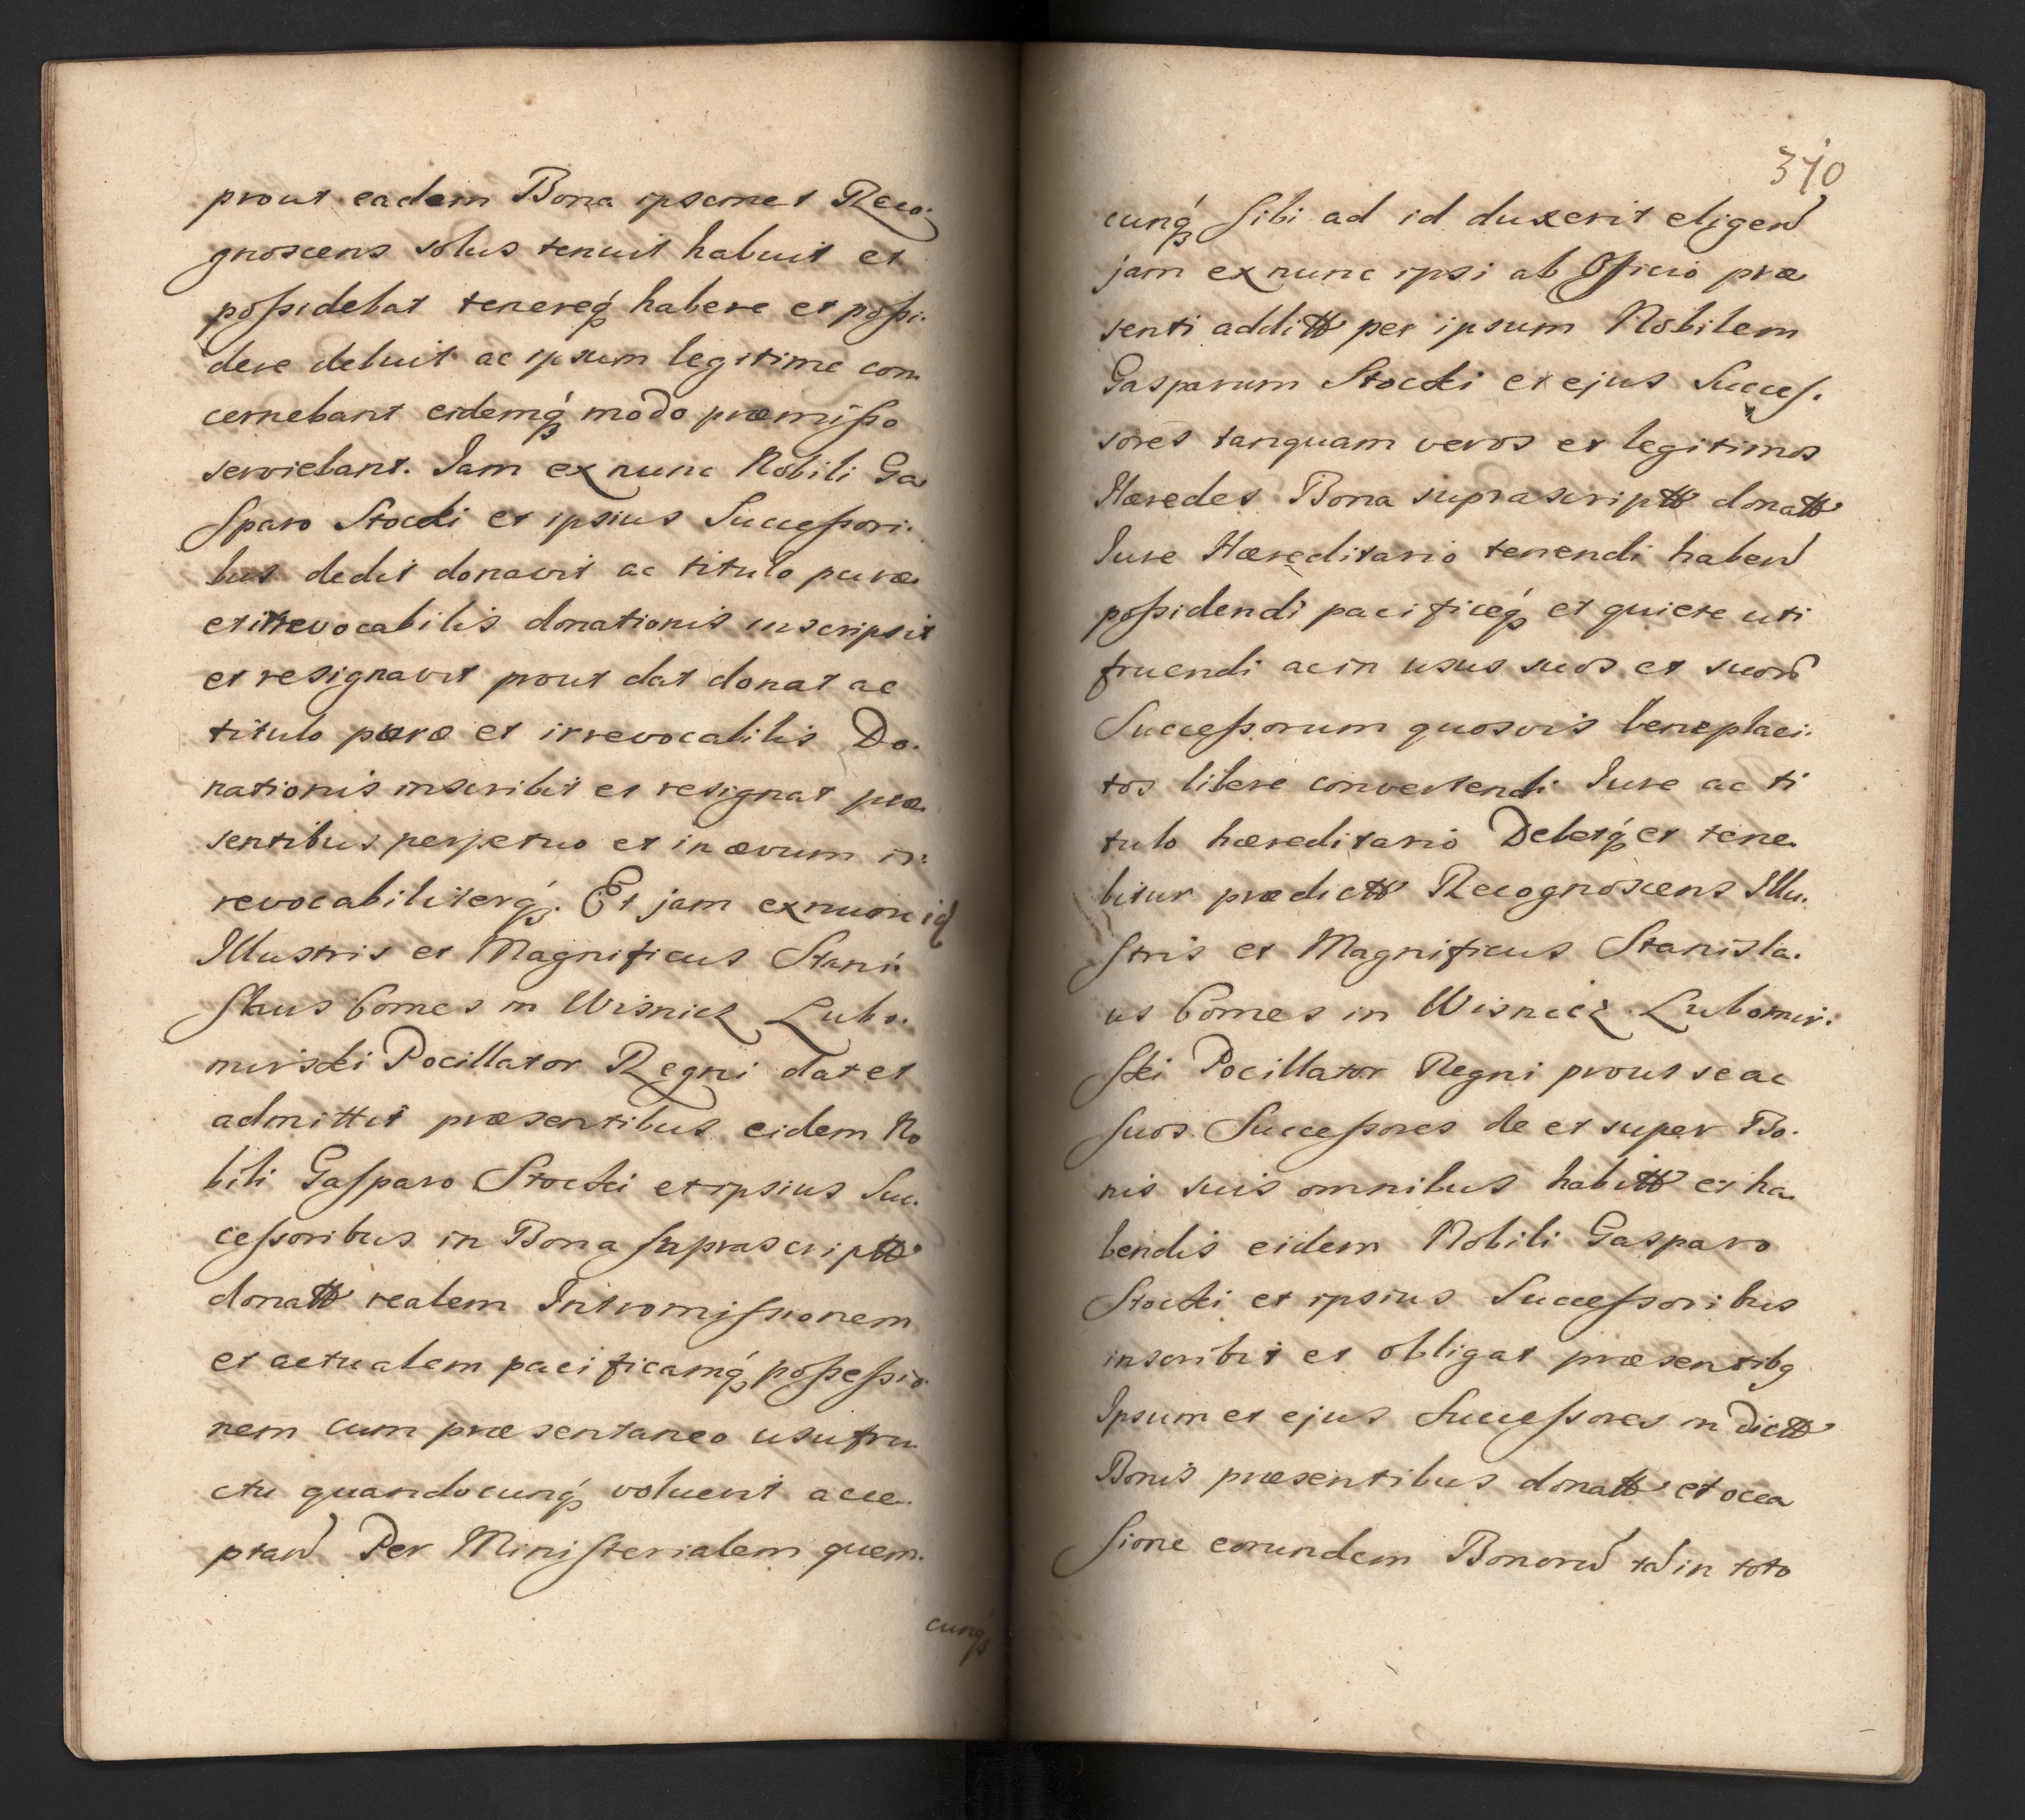 prout eadem Bona ipsemet Reco.
gnoscens solus tenuit habuit et
possidebat tenereq́ꝫ habere et possi.
dere debuit ac ipsum legitime con
cernebant eidemq́ꝫ modo præmisso
serviebant. Iam ex nunc Nobili Ga
sparo Stocki et ipsius Successori.
bus dedit donavit ac titulo puræ
et irrevocabilis donationis inscripsit
et resignavit prout dat donat ac
titulo puræ et irrevocabilis Do.
nationis inscribit et resignat præ
sentibus perpetuo et in ævum ir.
revocabiliterq́ꝫ. Et jam ex nunc id
Illustris et Magnificus Stani.
slaus Comes in Wisnicz Lubo.
mirski Pocillator Regni dat et
admittit præsentibus eidem No
bili Gasparo Stocki et ipsius Suc.
cessoribus in Bona suprascriptt
donatt realem Intromissionem
et actualem pacificamq́ꝫ possessio
nem cum præsentaneo usufru
ctu quandocunq́ꝫ voluerit acce
ptand Per Ministerialem quem.
cunq́ꝫ
370
cunq́ꝫ sibi ad id duxerit eligend
jam ex nunc ipsi ab Officio præ
senti additt per ipsum Nobilem
Gasparum Stocki et ejus Succes.
sores tanquam veros et legitimos
Hæredes Bona suprascriptt donatt
Iure Hæreditario tenendi habend
possidendi pacificeq́ꝫ et quiete uti
fruendi ac in usus suos et suor
Successorum quosvis beneplaci.
tos libere convertendi Iure ac ti
tulo hæreditario Debetq́ꝫ et tene.
bitur prædictt Recognoscens Illu.
stris et Magnificus Stanisla.
us Comes in Wisnicz Lubomir.
ski Pocillator Regni prout se ac
suos Successores de et super Bo.
nis suis omnibus habitt et ha
bendis eidem Nobili Gasparo
Stocki et ipsius Successoribus
inscribit et obligat præsentibꝫ
Ipsum et ejus Successores in dictt
Bonis præsentibus donatt et occa
sione eorundem Bonor td in toto